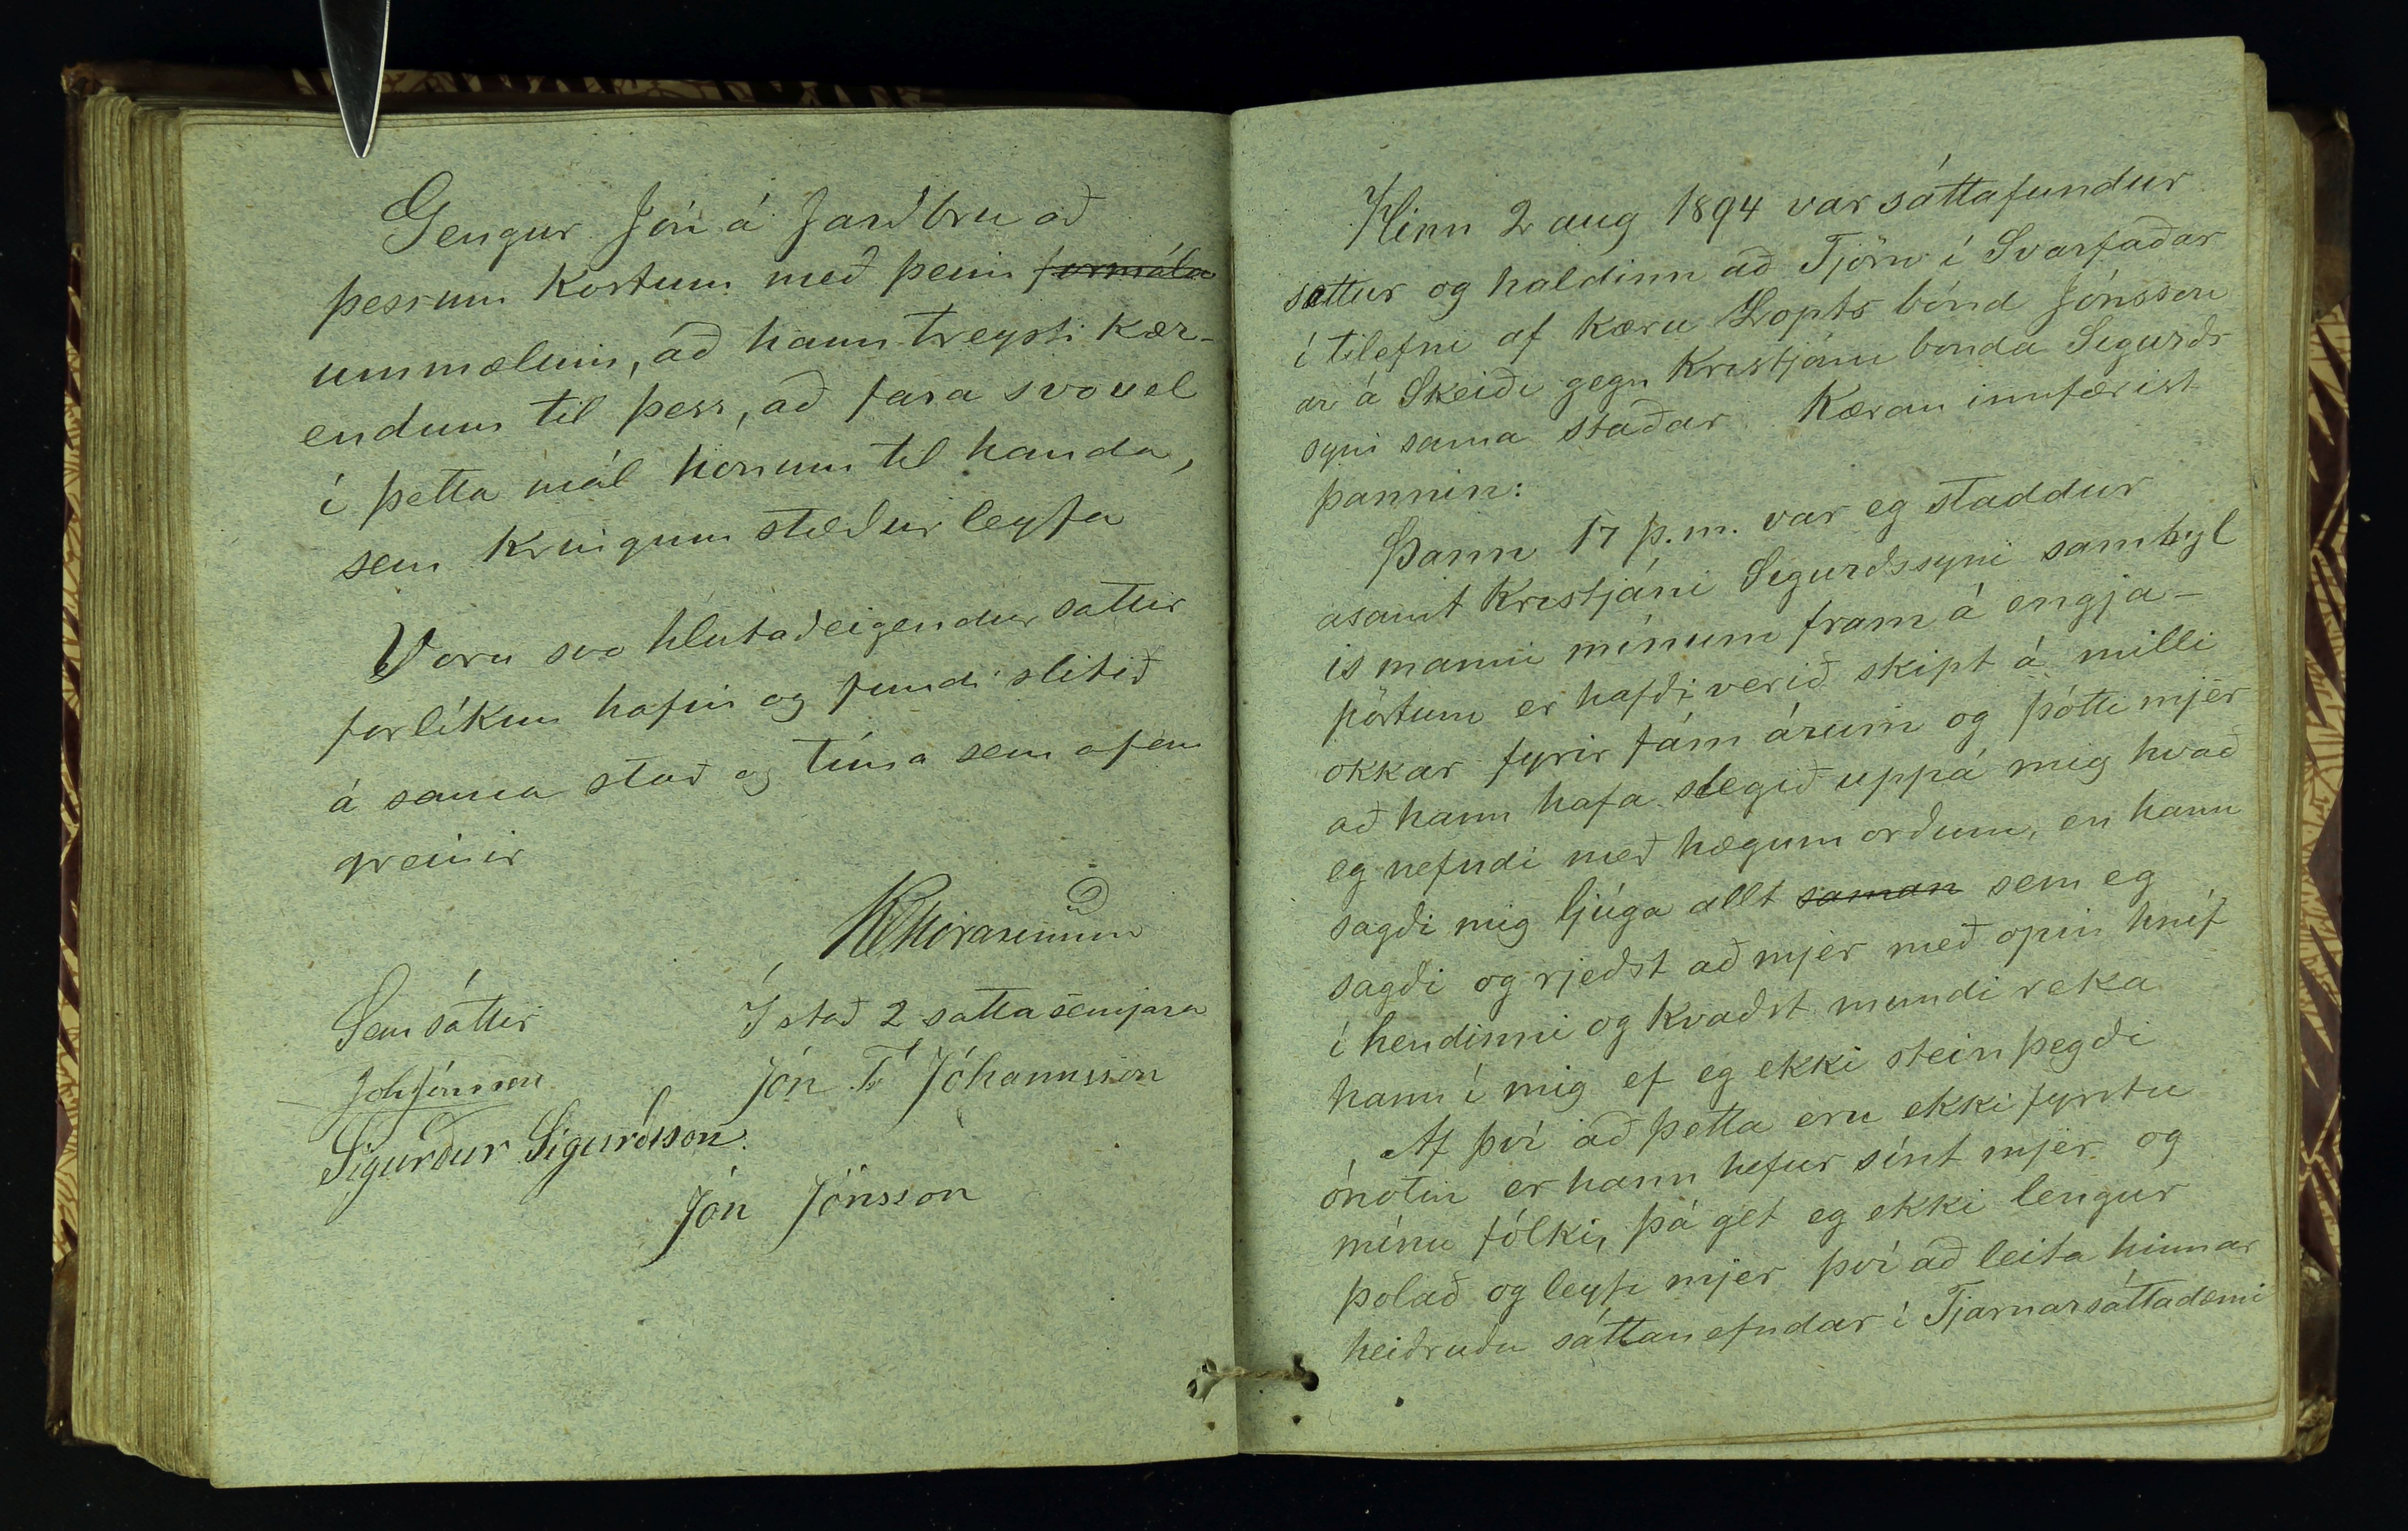 Gengur Jón á Jarðbru að
þessum kostum með þeim formála
ummælum, að hann treysti kær-
endum til þess, að fara svo vel
í þetta mál honum til handa,
sem kringumstæður leyfa
Voru svo hlutaðeigendur sattir
forlíkun hafin og fundi slitið
á sama stað og tíma sem ofan
greinir
Sem sáttir
Í stað 2 sattasemjara
Joh Jónsson
Jón T Jóhannsson
Sigurður Sigurðsson
Jón Jónsson
Hinn 2 aug 1894 var sáttafundur
settur og haldinn að Tjörn í Svarfaðar
í tilefni af kæru Lopts bónd Jónsson
ar á Skeiði gegn Kristjáni bonda Sigurðs
syni sama staðar. Kæran innfærist
þannin:
Þann 17 þ.m. var eg staddur
asamt Kristjáni Sigurðssyni sambýl
is manni mínum fram á engja-
pörtum er hafði verið skipt á milli
okkar fyrir fám árum og þótti mjer
að hann hafa slegið uppá mig hvað
eg nefndi með hægum orðum, en hann
sagði mig ljúga allt saman sem eg
sagði og rjeðst að mjer með opin hníf
í hendinni og kvaðst mundi reka
hann í mig ef eg ekki stein þegði
Af því að þetta eru ekki fyrstu
ónotin er hann hefur sínt mjer og
mínu fólki, þá get eg ekki lengur
þolað og leyfi mjer því að leita hinnar
heiðruðu sáttanefndar í Tjarnarsáttadæmi